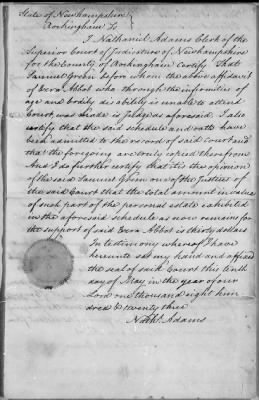 State of Newhampshire
Rockingham Ss
I Nathaniel Adams Clerk of the
Superior Court of Judicature of Newhampshire
for the County of Rockingham Certify That
Samuel Green before whom the above affidavit
of Ezra Abbot who through the infirmities of
age and bodily disability is unable to attend
Court was made is Judge as aforesaid. I also
certify that the said schedule and oath have
been admitted to the record of said court and
that the foregoing are truly copied therefrom
And I do further certify that it is the opinion
of the said Samuel Green one of the Justices of
the said Court that the total amount in value
of such part of the personal estate exhibited
in the aforesaid schedule as now remains for
the support of said Ezra Abbot is thirty dollars
In testimony whereof I have
hereunto set my hand and affixed
the seal of said Court this tenth
day of May in the year of our
Lord one thousand eight hun
dred & twenty three
Nathl Adams